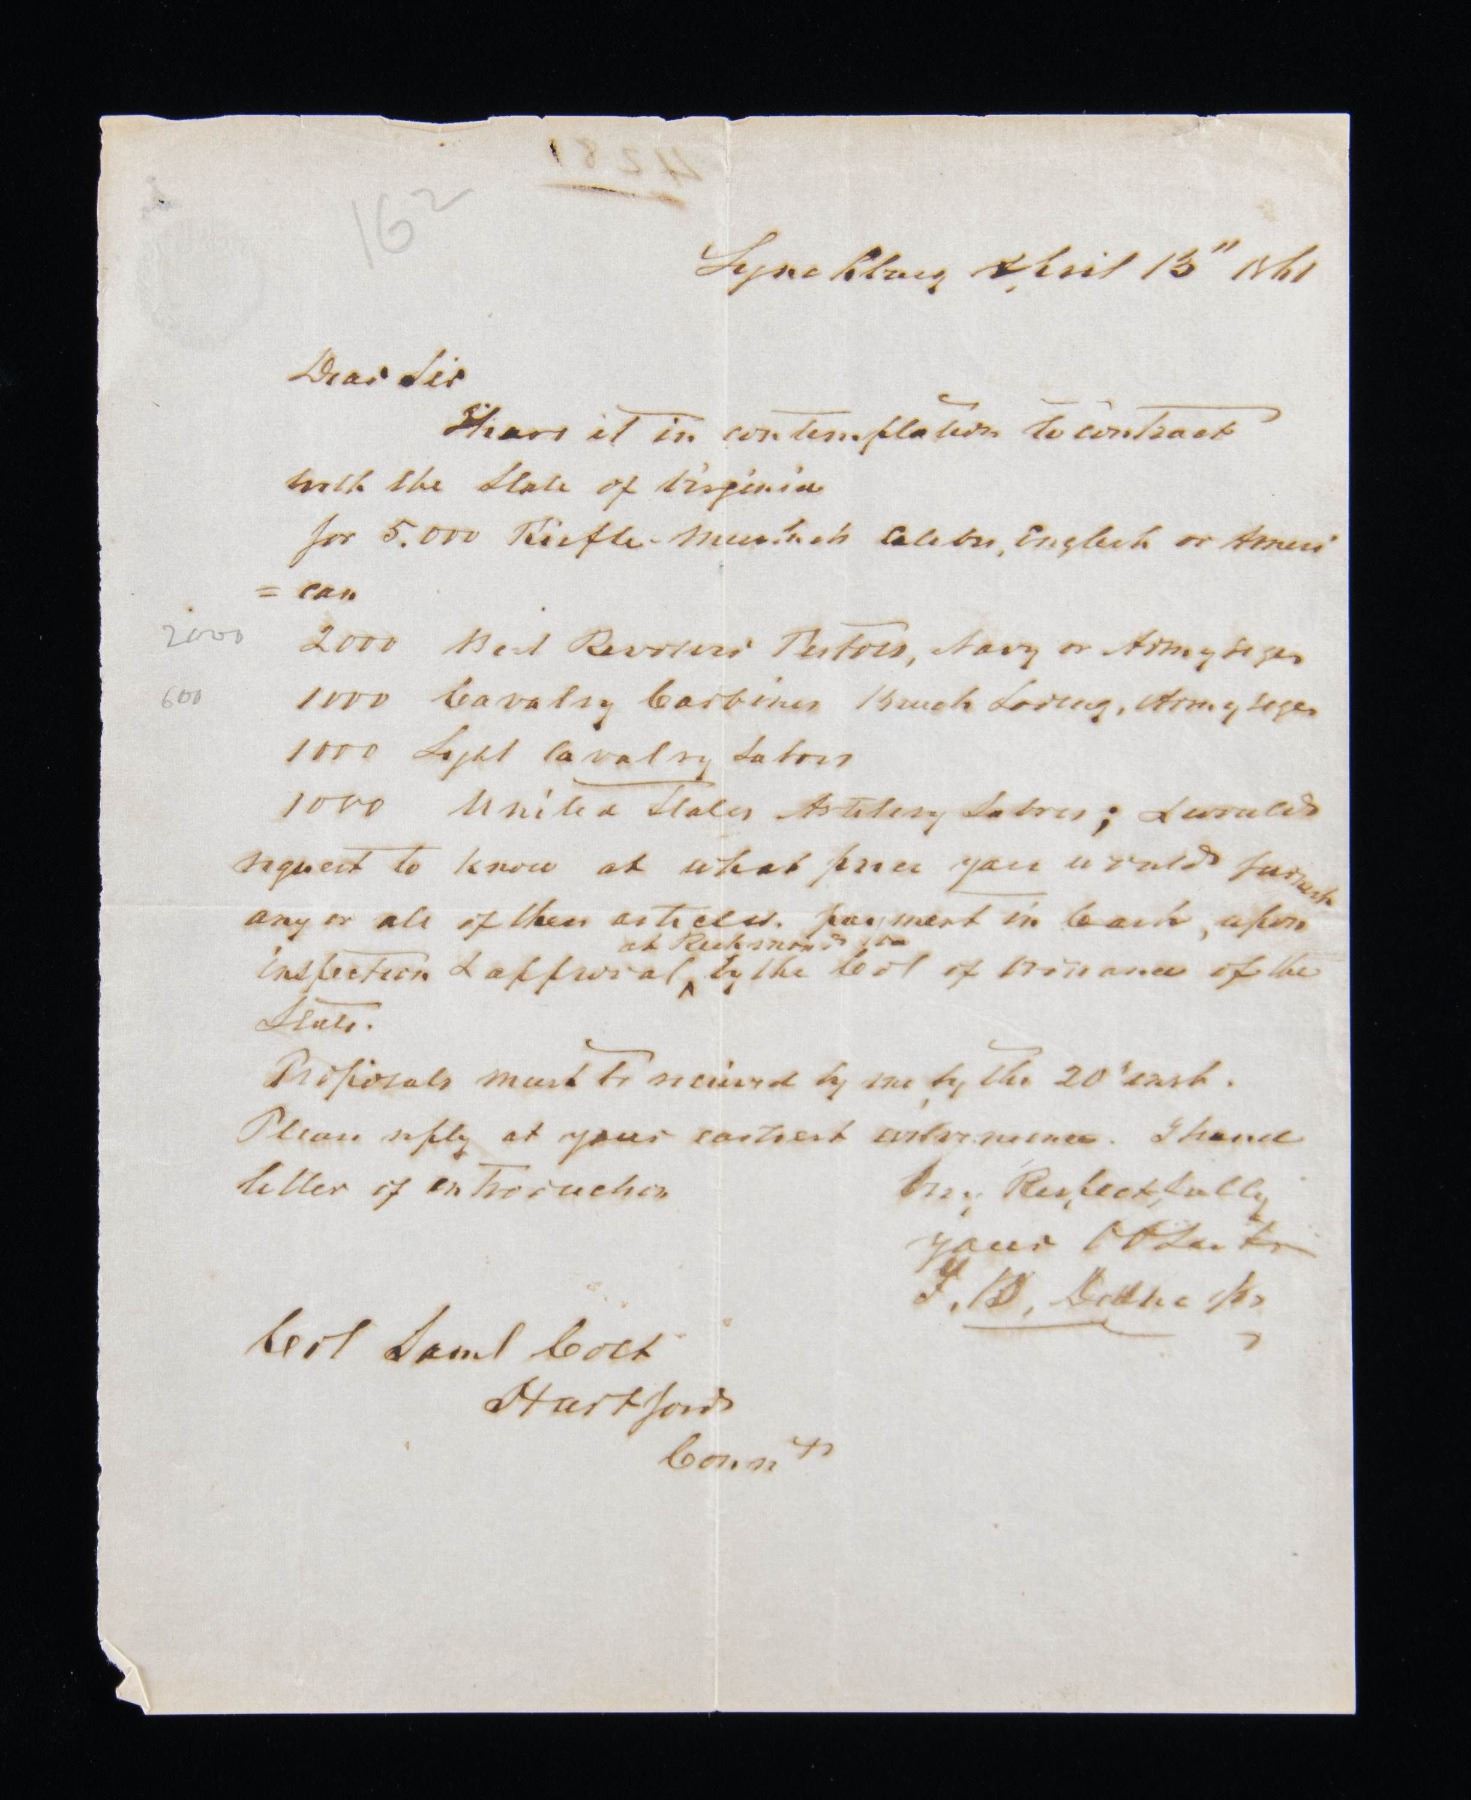 1821
162
Lynchburg April 13" 1861
Dear Sir
I have it in contemplation to contract
with the State of Virginia
for 5.000 Riefle Muskets Calebre, English or Ameri
= can
2000 2000 Best Revolvers Pistols, Navy or Army sizes
600 1000 Cavalry Carbines Breech Loding, Army sizes
1000 Light Cavalry Sabers
1000 United States Artilery Sabres; & would
request to know at what price you would furnish
any or all of these articles. payment in Cash, upon
at Richmond Va
inspection & approval, by the Col of Ordnance of the
State.
Proposals must be recieved by me by the 20' inst.
Please reply at your earliest convenience. I have
letter of introduction
Very Respectfully
your Obt
F. B.
Col Saml Colt
Hartford
Connt